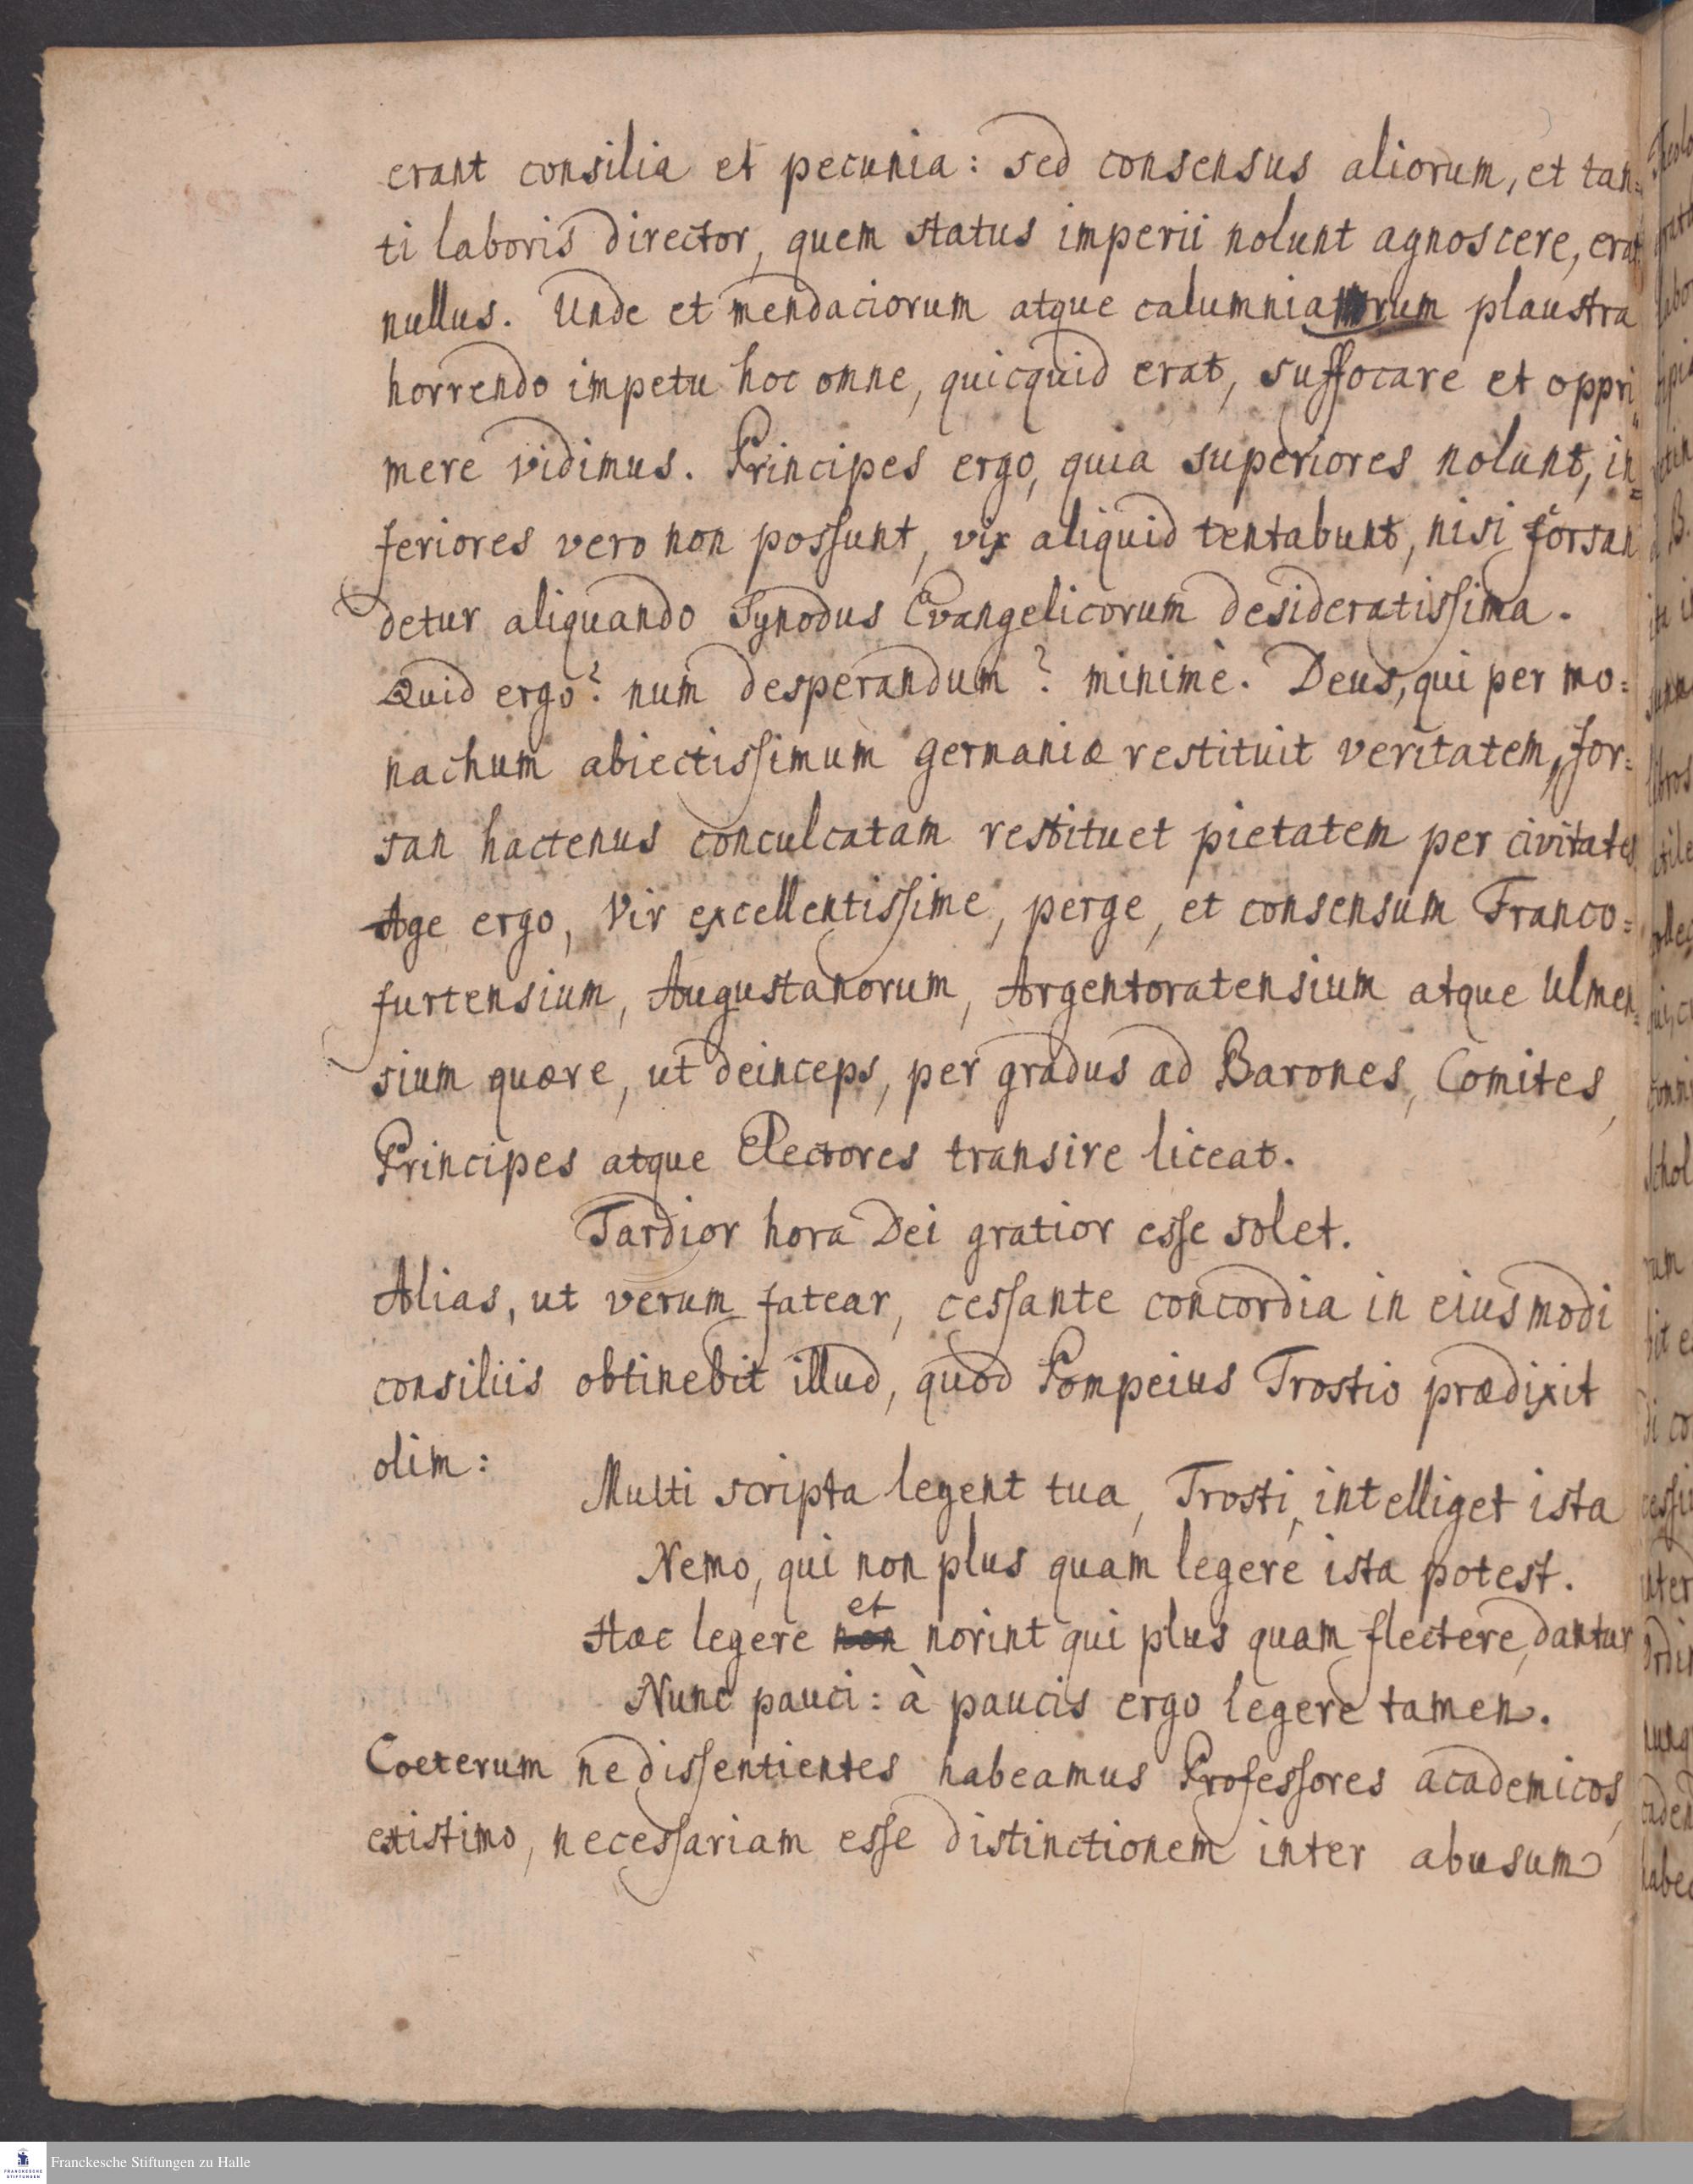 erant consilia et pecunia: sed consensus aliorum, et tan=
ti laboris director, quem status imperii nolunt agnoscere, erat
nullus. Unde et mendaciorum atque calumniarum plaustra
horrendo impetu hoc omne, quicquid erat, suffocare et oppri=
mere vidimus. Principes ergo, quia superiores nolunt, in=
feriores vero non possunt, vix aliquid tentabunt, nisi forsan
detur aliquando Synodus Evangelicorum desideratissima.
Quid ergo? num desperandum? minimè. Deus, qui per mo=
nachum abiectissimum germaniæ restituit veritatem, for=
san hactenus conculcatam restituet pietatem per civitates
Age ergo, Vir excellentissime, perge, et consensum Franco=
furtensium, Augustanorum, Argentoratensium atque Ulmen=
sium quære, ut deinceps, per gradus ad Barones, Comites,
Principes atque Electores transire liceat.
Tardior hora Dei gratior esse solet.
Alias, ut verum fatear, cessante concordia in eiusmodi
consiliis obtinebit illud, quod Pompeius Trostio prædixit
olim:
Multi scripta legent tua, Trosti, intelliget ista
Nemo, qui non plus quam legere ista potest.
et
Hæc legere non norint qui plus quam flectere, dantur
Nunc pauci: à paucis ergo legere tamen.
Coeterum ne dissentientes habeamus Professores academicos,
existimo, necessariam esse distinctionem inter abusum
Franckesche Stiftungen zu Halle